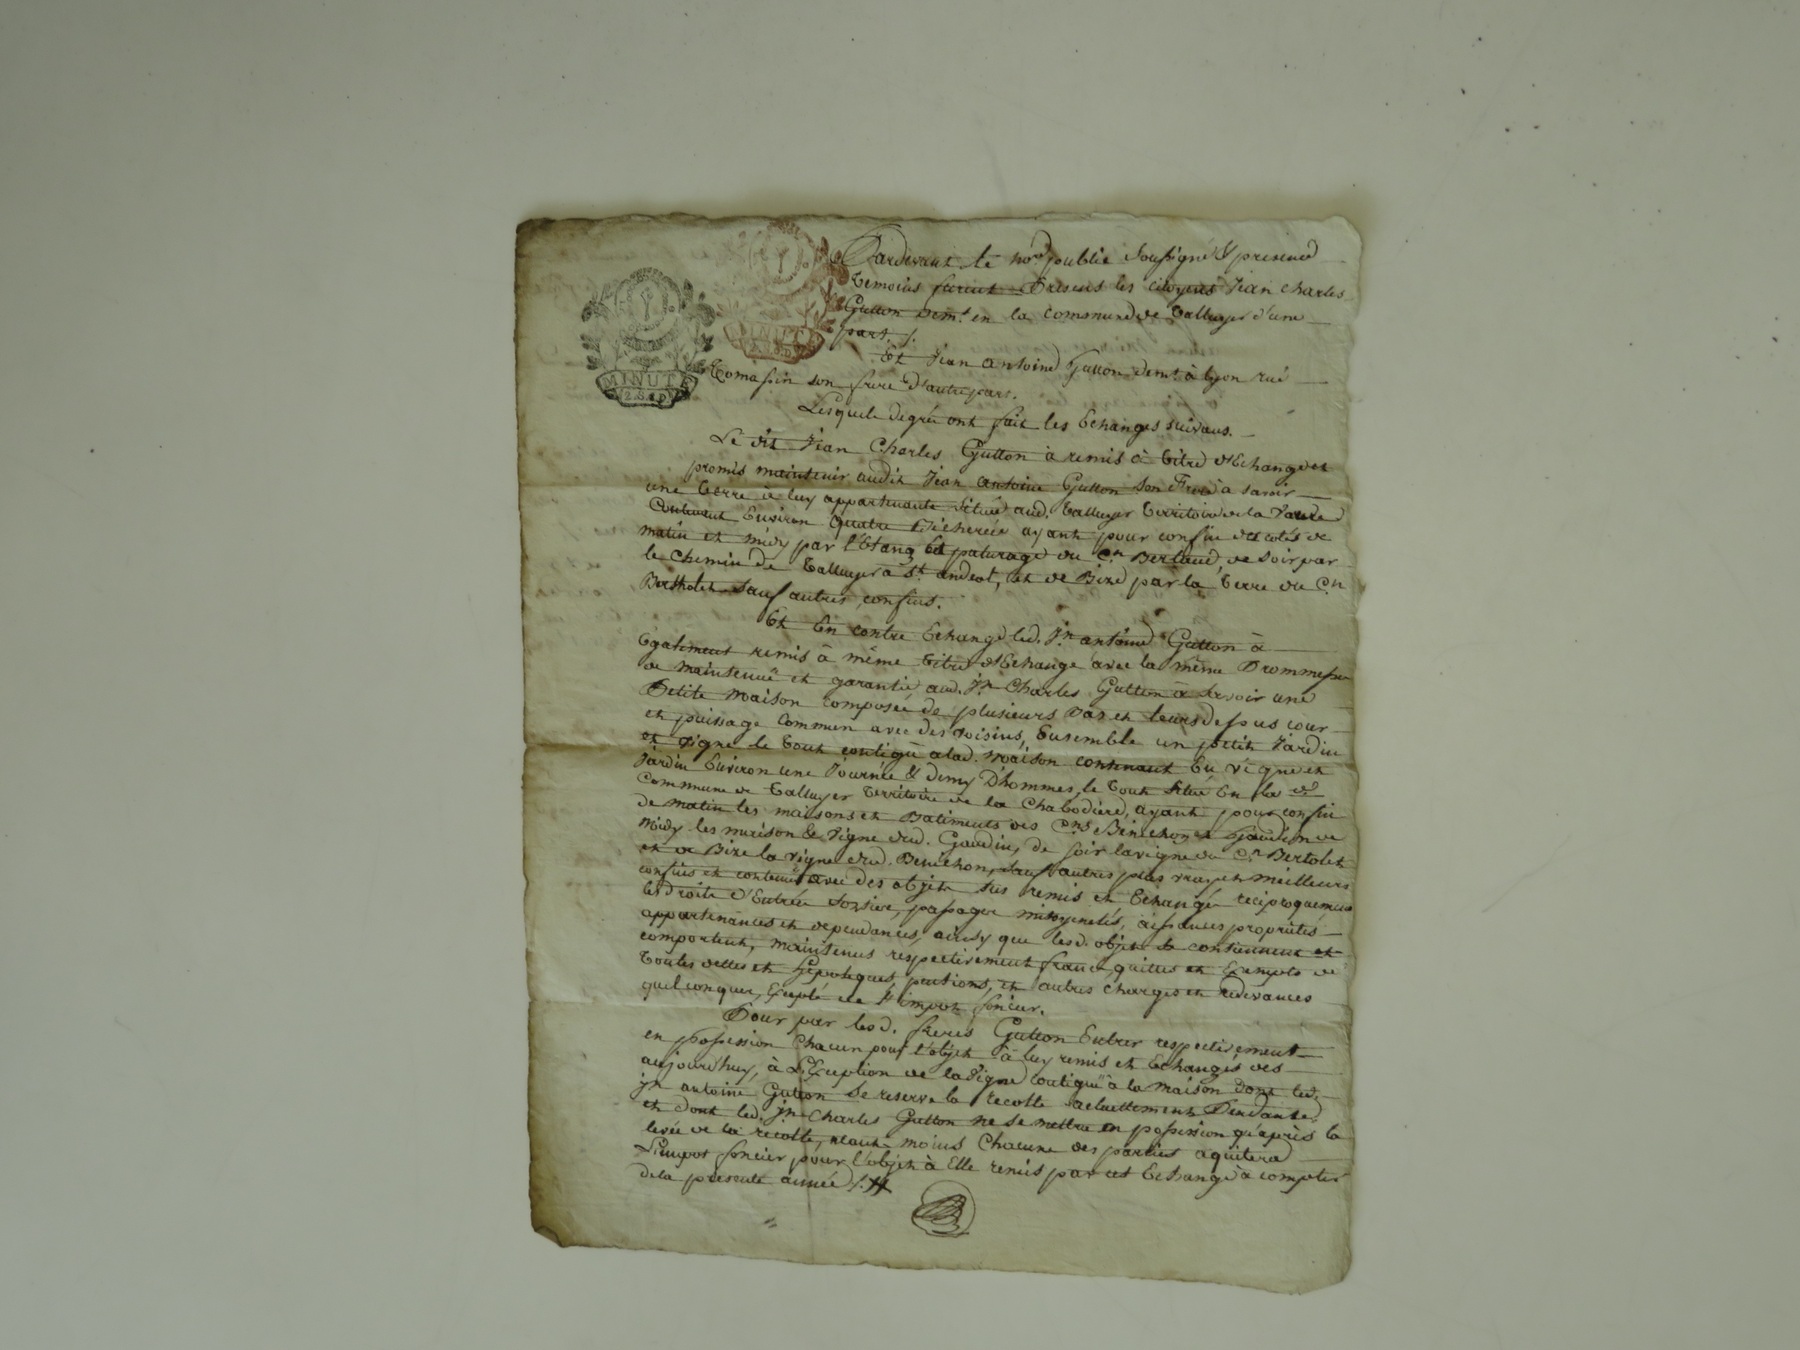 Pardevant le no.re public Soussigné & presence
temoins furent Presens les citoyens Jean Charles
Gutton Dem.t en la commune de Talluyer d'une
part. /.
Et Jean Antoine Gutton dem.t à Lyon rue
Tomassin son frere d'autre part.
MINUTE
MINUTE
Lesquels de gré ont fait les Echanges suivans.
Le dit Jean Charles Gutton à remis à titre d'Echange et
promis maintenir audit Jean Antoine Gutton son Frere à savoir
une terre à luy appartenante située aud. Talluyer territoire de la
Contenant Environ quatre Bicherées ayant pour confin des cotés de
matin et midy par l'Etang Et paturage du C.n Bertaud, de soir par
le chemin de Talluyer à S.t andeol, et de Bize par la terre du C.n
Bertholet sauf autres confins.
Et En contre Echange led. J.n antoine Gutton à
Egalement remis à même titre d'Echange avec la même Prommesse
de maintenue et garantie aud. J.n Charles Gutton à Savoir une
Petite maison composée de plusieurs bas et leurs dessus cour
et puisage commun avec des voisins, Ensemble un petit Jardin
et vigne le tout contigu à lad. maison contenant En vigne et
Jardin Environ une Journée & demy D'hommes, le tout situé En la d.
Commune de Talluyer territoire de la Chabodiere, ayant pour confin
de matin les maisons et Batiments des C.ns Benichon et Gaudin de
Midy les maison & vigne dud. Gaudin, de soir la vigne du C.n Bertolet
et de Bize la vigne dud. Benichon, sauf autres plus vrays et meilleurs
confins et contenu avec des objets sus remis et Echangé reciproquement
les droits d'Entrée sortie, passages mitoyenetés, aisances proprietés
appartenances et dependances, ainsy que lesd. objets se contiennent et
comportent, maintenus respectivement francs, quittes et Exempts de
toutes dettes et hypoteques, pentions, et autres charges et redevances
quelconques, Excepté de l'impot foncier.
Pour par lesd. freres Gutton Entrer respectivement
en possession chacun pour l'objet à luy remis et Echangé, dès
aujourd'huy, à L'Exception de la vigne contigue à la maison dont led.
J.n antoine Gutton se reserve la recolte actuellement Pendante,
et dont led. J.n Charles Gutton ne se mettra en possession qu'après la
levée de la recolte, neant-moins Chacune des parties aquitera
L'impot foncier pour l'objet à Elle remis par cet Echange à compter
de la presente année /.